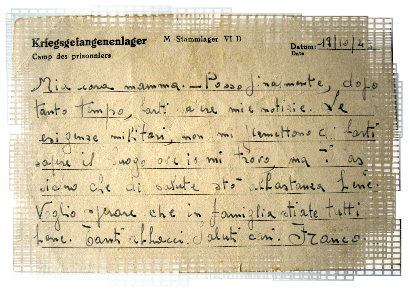 Kriegsgefangenenlager M Stammlager VI D Datum: 19/10/4
Camp des prisonniers Date
Mia cara mamma. - Posso finalmente, dopo
tanto tempo, farti avere mie notizie. Le
esigenze militari, non mi permettono di farti
sapere il luogo ove io mi trovo, ma ti as
sicuro che di salute stò abbastanza bene.
Voglio sperare che in famiglia stiate tutti
bene. Tanti abbacci. Saluti cari. Franco